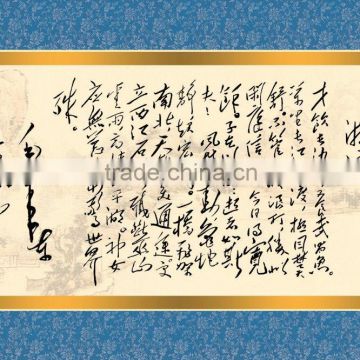 才饮长沙水又食武昌鱼
万里长江横渡极目楚天
舒不管风吹浪打胜似
闲庭信步今日得宽
馀子在川上曰逝者如斯
夫风樯动龟蛇
静起宏图一桥飞架
南北天堑变通途更
立西江石壁截断巫山
云雨高峡出平湖神女
应无恙当惊世界
殊。
毛泽东